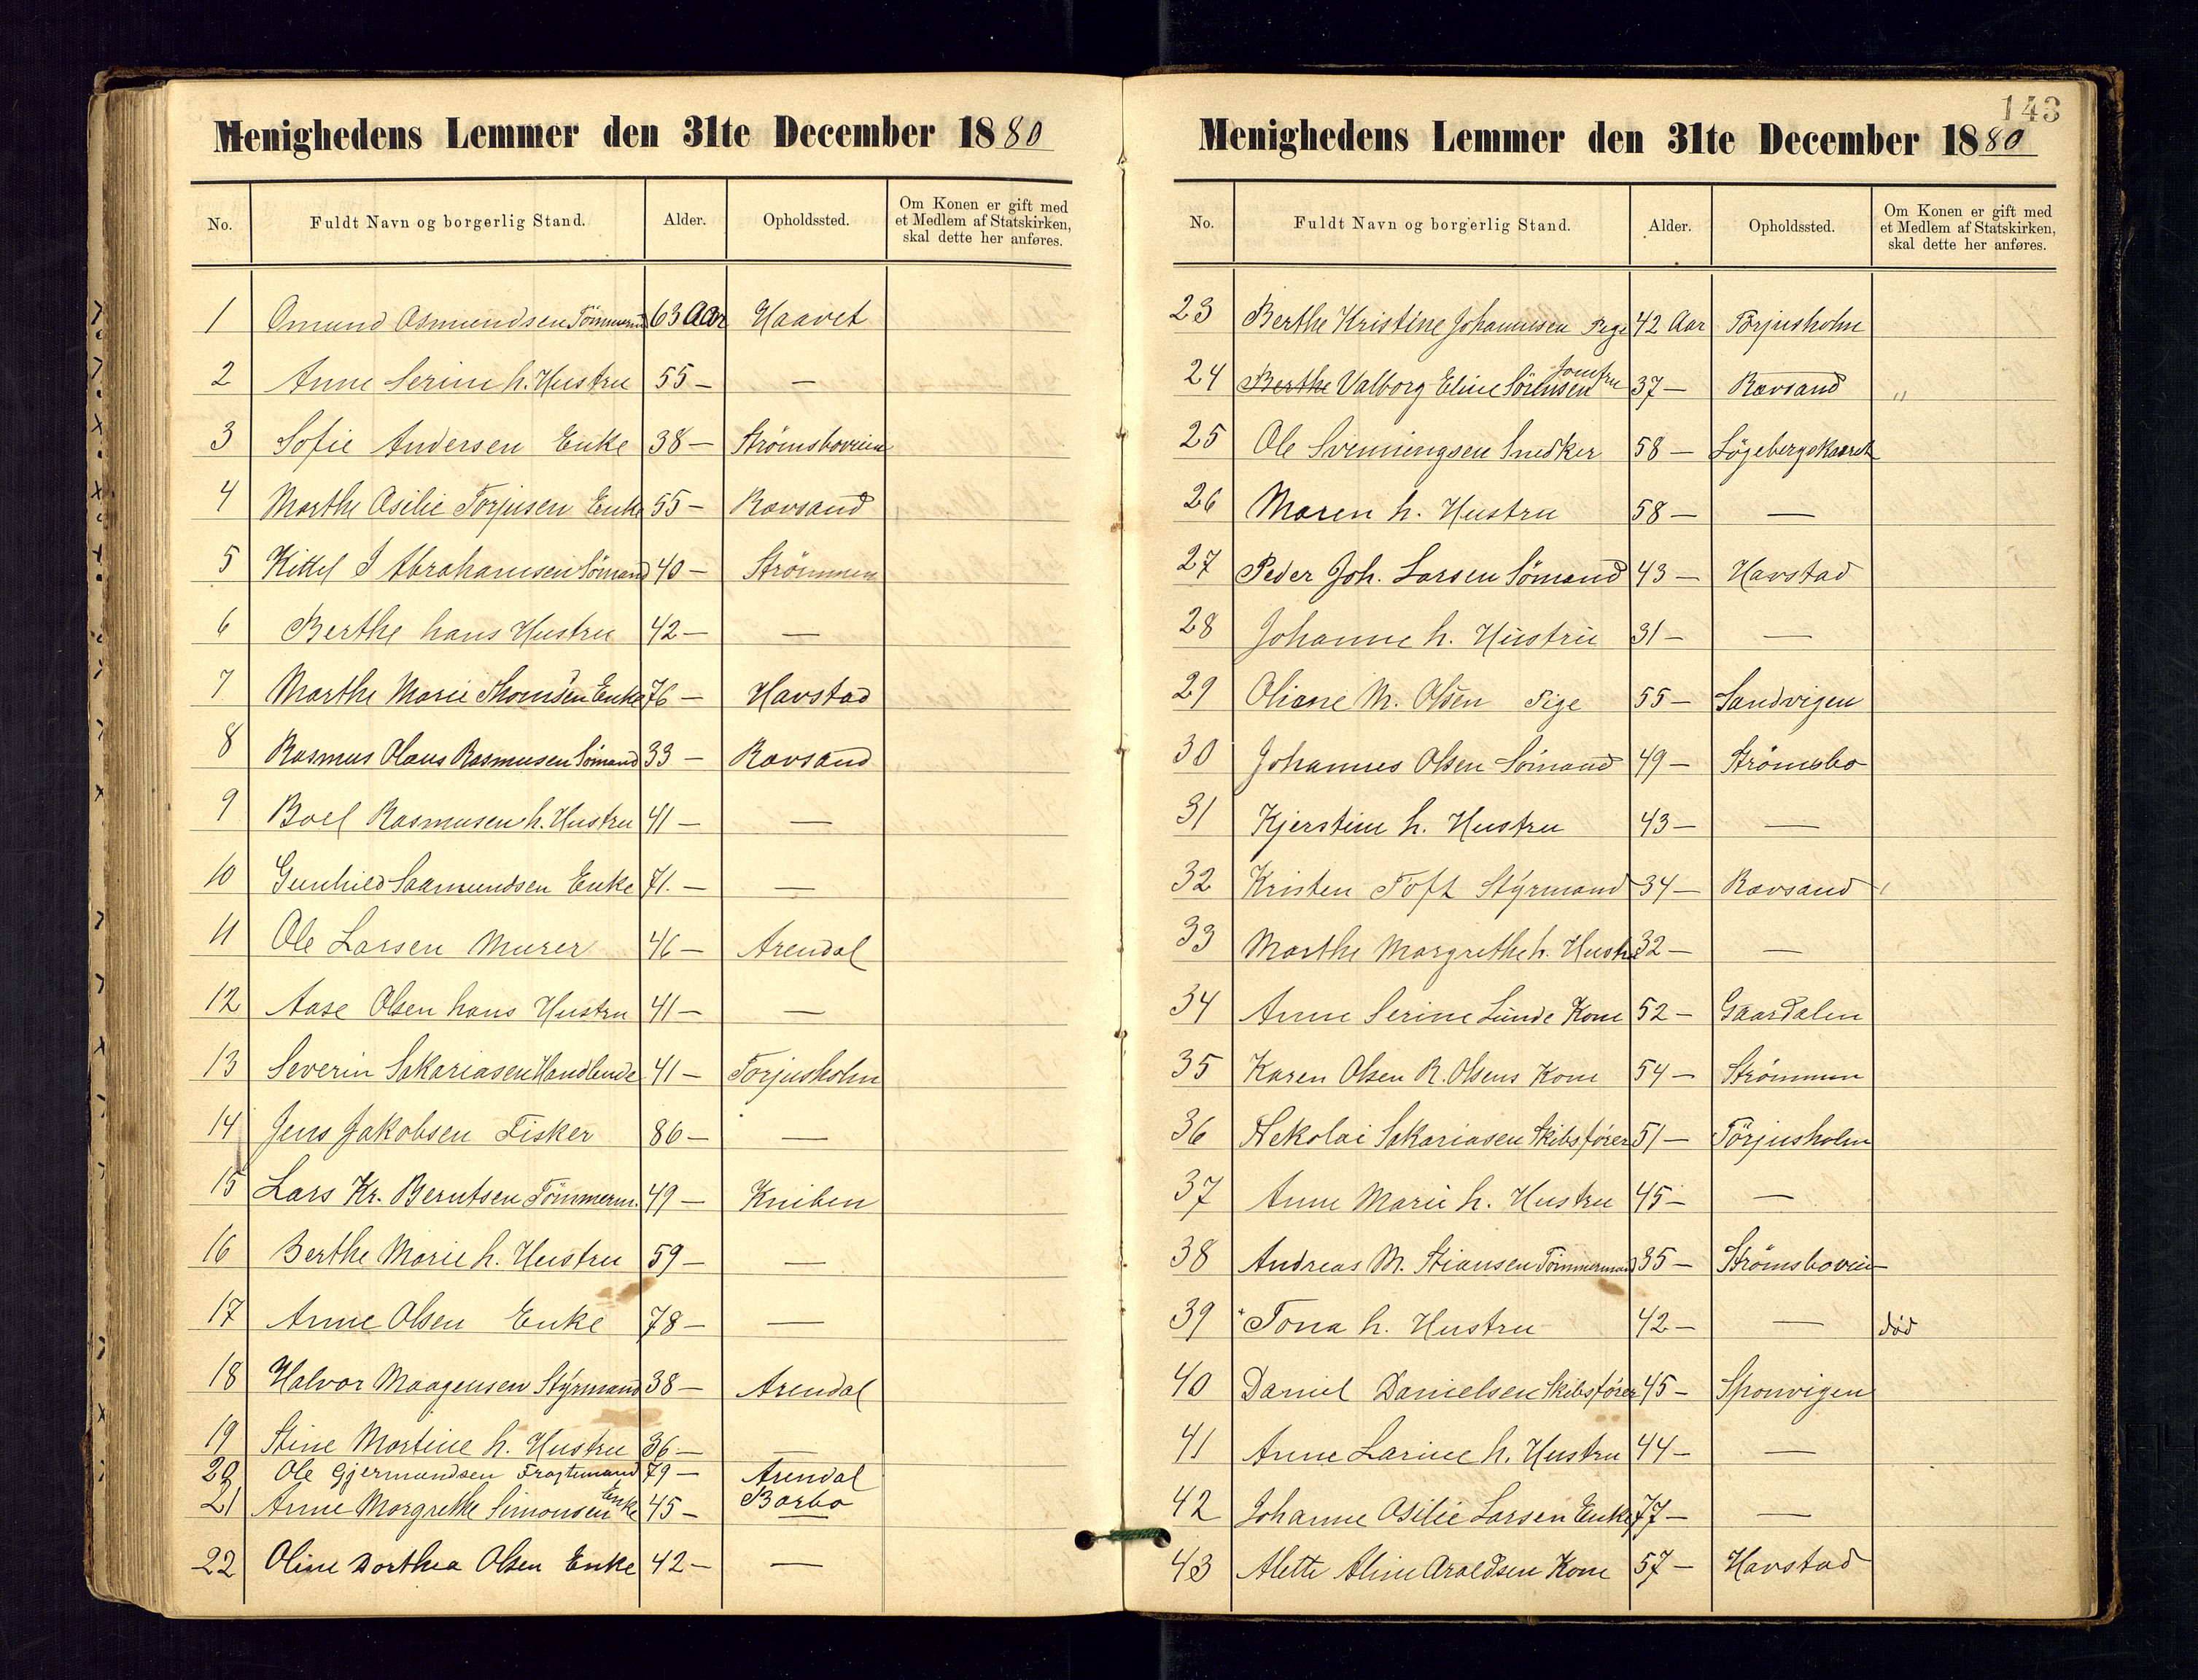 Menighedens Lemmer den 31te December 1880
No. Fuldt Navn og borgerlig Stand. Alder. Opholdssted. Om Konen er gift med et Medlem af Statskirken, skal dette her anføres.
1 Omund Osmundsen Tömmerm 63 Aar Haavet
2 Anne Serine h. Hustru 55 — —
3 Sofie Andersen Enke 38 — Strømsboveien
4 Marthe Asilie Torjusen Enke 55 — Ravsand
5 Kittel J Abrahamsen Sömand 40 — Strömmen
6 Berthe hans Hustru 42 — —
7 Marthe Marie Thomsen Enke 76 — Havstad
8 Rasmus Olaus Rasmusen Sömand 33 — Ravsand
9 Boel Rasmusen h. Hustru 41 — —
10 Gunhild Saamundsen Enke 71. — —
11 Ole Larsen Murer 46 — Arendal
12 Aase Olsen hans Hustru 41 — —
13 Severin Sakariasen Handlende 41 — Torjusholm
14 Jens Jakobsen Fisker 86 — —
15 Lars Kr. Berntsen Tömmerm. 49 — Kniben
16 Berthe Marie h. Hustru 59 — —
17 Anne Olsen Enke 78 — —
18 Halvor Maagensen Styrmand 38 — Arendal
19 Stine Martine h. Hustru 36 — —
20 Ole Gjermundsen Fragtemand 79 — Arendal
21 Anne Margrethe Simonsen Enke 45 — Barbo
22 Oline Dorthea Olsen Enke 42 — —
143
Menighedens Lemmer den 31te December 1880
No. Fuldt Navn og borgerlig Stand. Alder. Opholdssted. Om Konen er gift med et Medlem af Statskirken, skal dette her anføres.
23 Berthe Kristine Johannesen Pige 42 Aar Torjusholm
24 Berthe Valborg Eline Sörensen Jomfru 37 — Ravsand "
25 Ole Svenningsen Snedker 58 —
26 Maren h. Hustru 58 — —
27 Peder Joh. Larsen Sömand 43 — Havstad
28 Johanne h. Hustru 31 — —
29 Oliane M. Olsen Pige 55 — Sandvigen
30 Johannes Olsen Sömand 49 — Strömsbo
31 Kjerstine h. Hustru 43 — —
32 Kristen Toft Styrmand 34 — Ravsand
33 Marthe Margrethe h. Hustru 32 — —
34 Anne Serine Lunde Kone 52 — Gaardalen
35 Karen Olsen R. Olsens Kone 54 — Strömmen
36 Nekolai Sakariasen Skibsfører 51 — Törjusholm
37 Anne Marie h. Hustru 45 — —
38 Andreas M. Stiansen Tömmermand 35 — Strömsboveien
39 Tona h. Hustru 42 — — död
40 Daniel Danielsen Skibsfører 45 — Sponvigen
41 Anne Larine h. Hustru 44 — —
42 Johanne Asilie Larsen Enke 77 — —
43 Alette Aline Aroldsen Kone 57 — Havstad